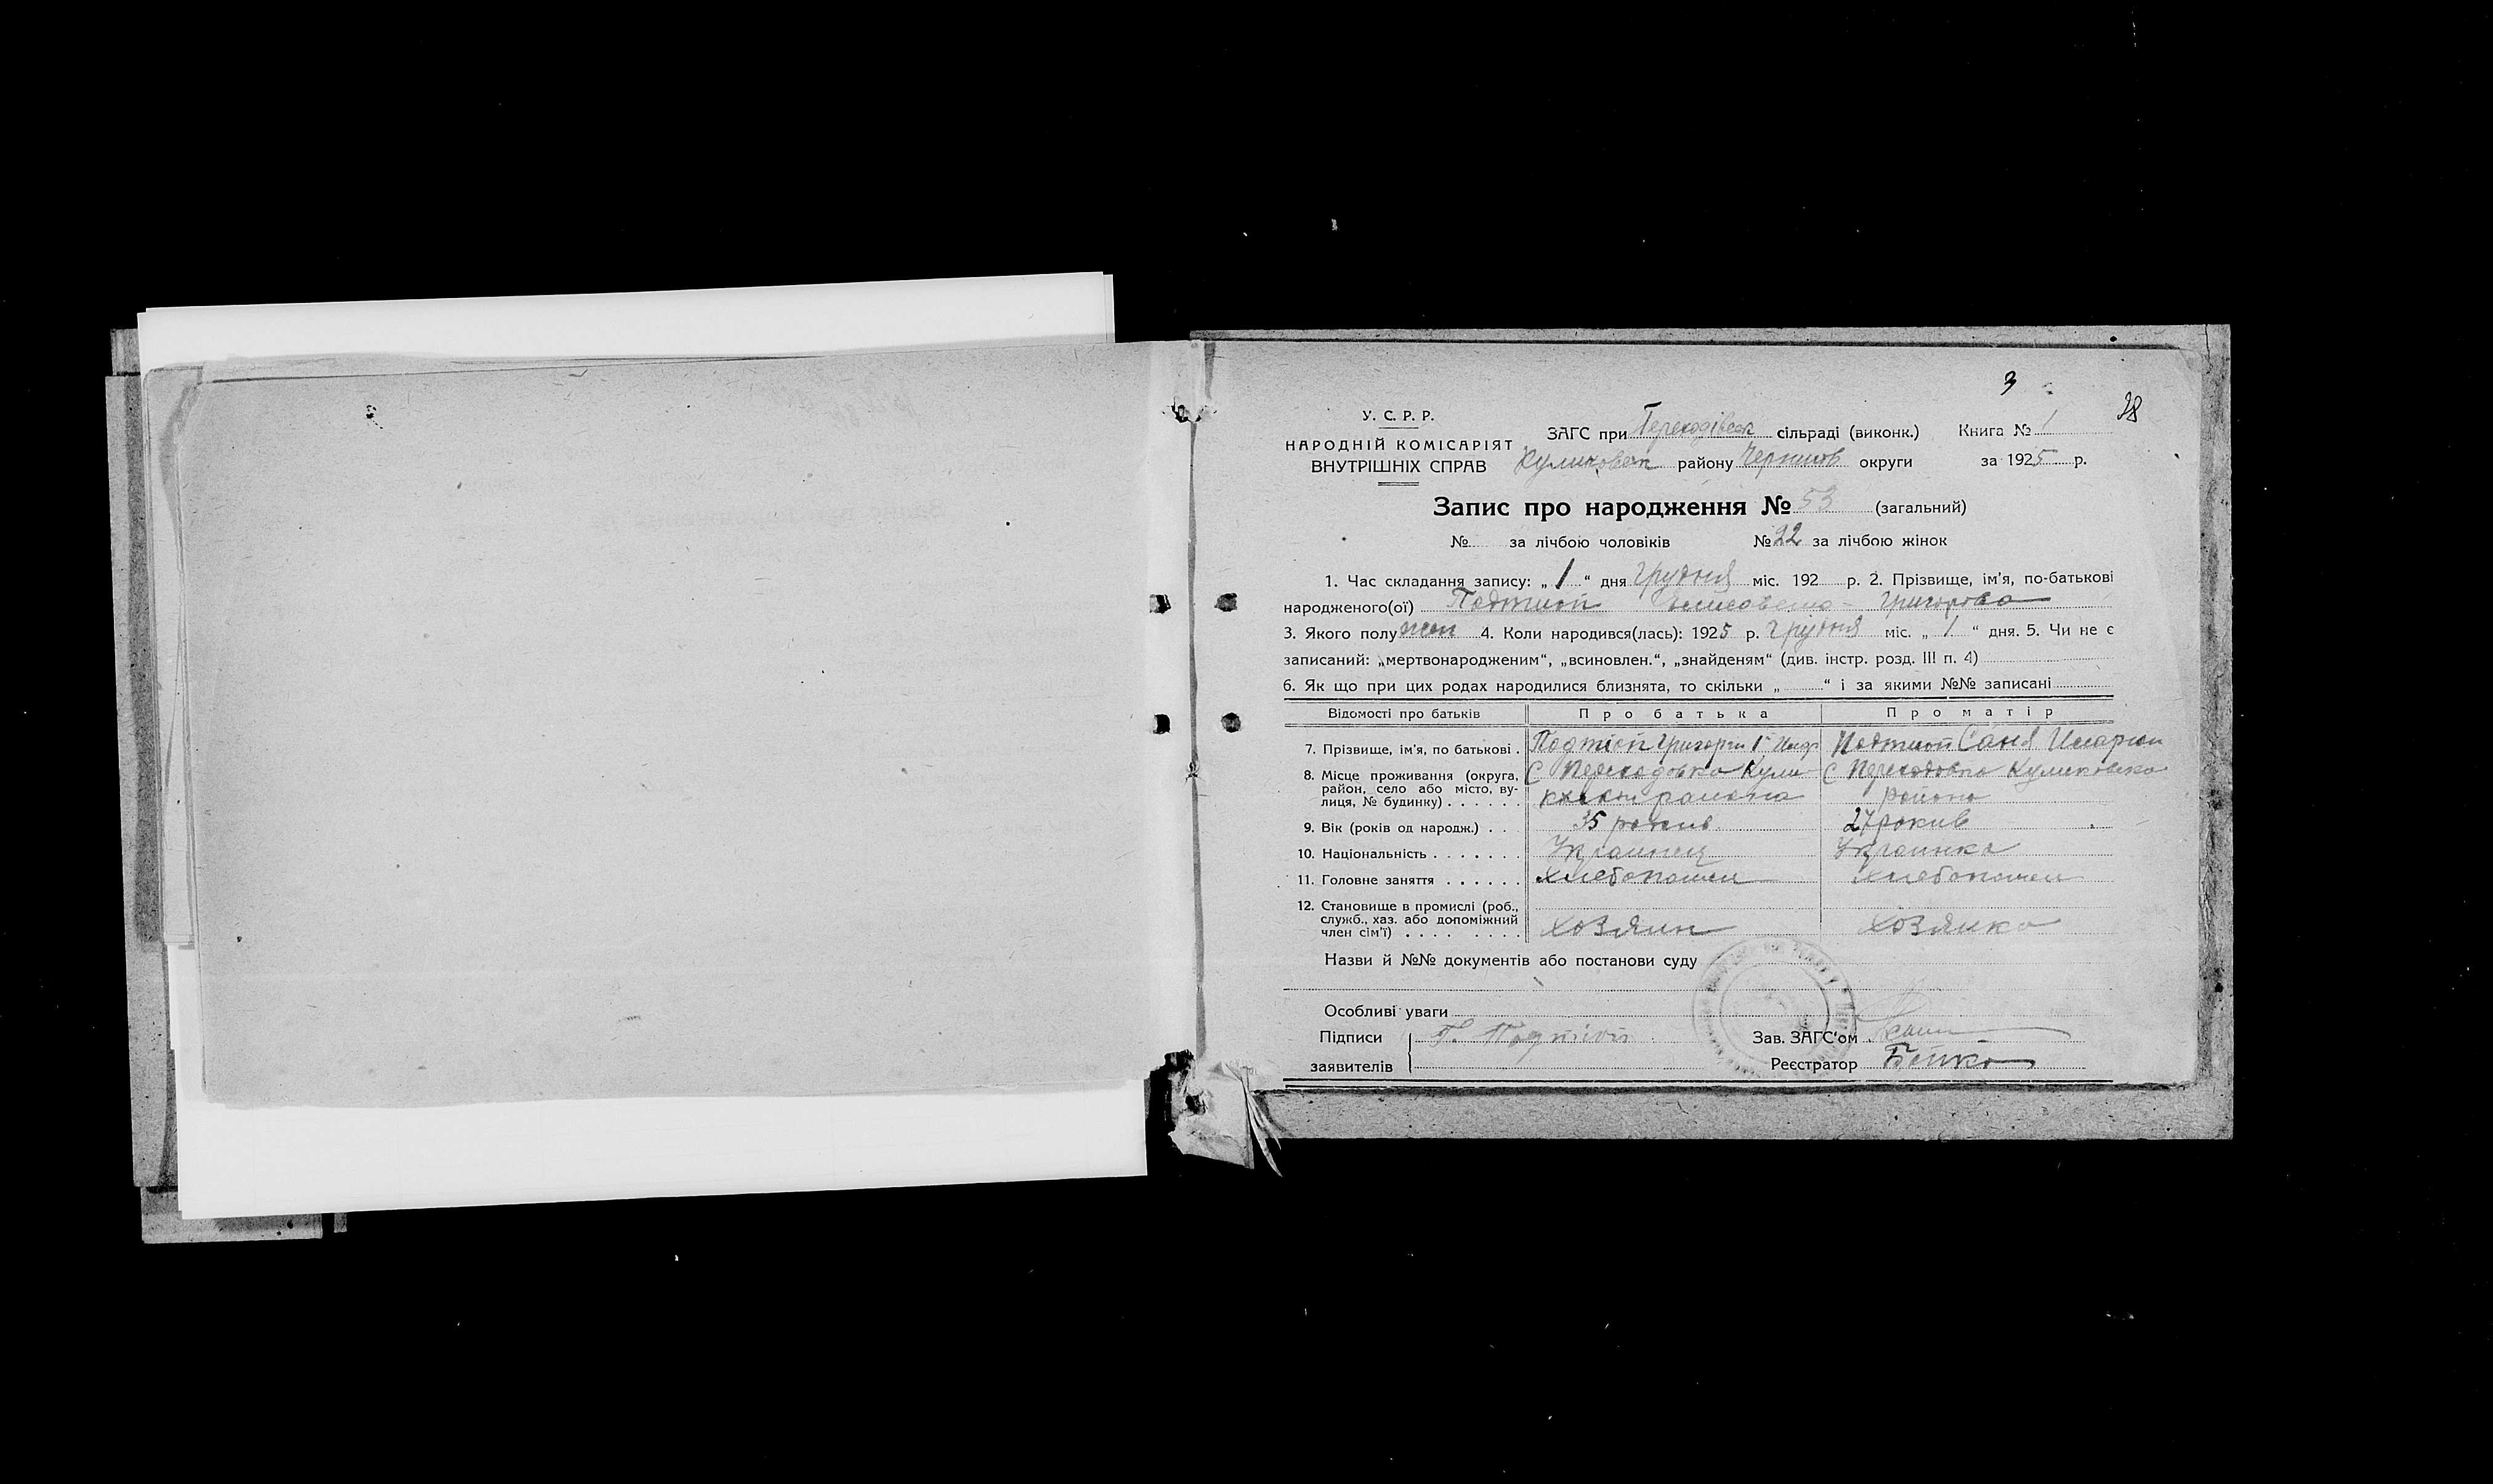 3
28
У. С. Р. Р.
НАРОДНІЙ КОМІСАРІЯТ
ВНУТРІШНІХ СПРАВ
ЗАГС при Переходівск сільраді (виконк.) Книга № 1
Куликовск району Чернигов округи за 1925 р.
Запис про народження № 53 (загальний)
№ за лічбою чоловіків № 22 за лічбою жінок
1. Час складання запису: „ 1 “ дня Грудня міс. 192 р. 2. Прізвище, ім’я, по-батькові
народженого(ої) Григорова
3. Якого полу жен 4. Коли народився(лась): 1925 р. Грудня міс. „ 1 “ дня. 5. Чи не є
записаний: „мертвонародженим“, „всиновлен.“, „знайденям“ (див. інстр. розд. III п. 4)
6. Як що при цих родах народилися близнята, то скільки „ “ і за якими №№ записані
Відомості про батьків Про батька Про матір
7. Прізвище, ім’я, по батькові .
8. Місце проживання (округа, С Переходовка Кули- С Переходовка Куликовско
район, село або місто, ву-
лиця, № будинку) . . . . . . района района
9. Вік (років од народж.) . . 35 рокив 27 рокив
10. Національність . . . . . . . Украинец Украинка
11. Головне заняття . . . . . .
12. Становище в промислі (роб.,
служб., хаз. або допоміжний
член сім’ї) . . . . . . . . Хозяин Хозяика
Назви й №№ документів або постанови суду
Особливі уваги
Підписи Зав. ЗАГС‘ом
заявителів Реєстратор Бойко